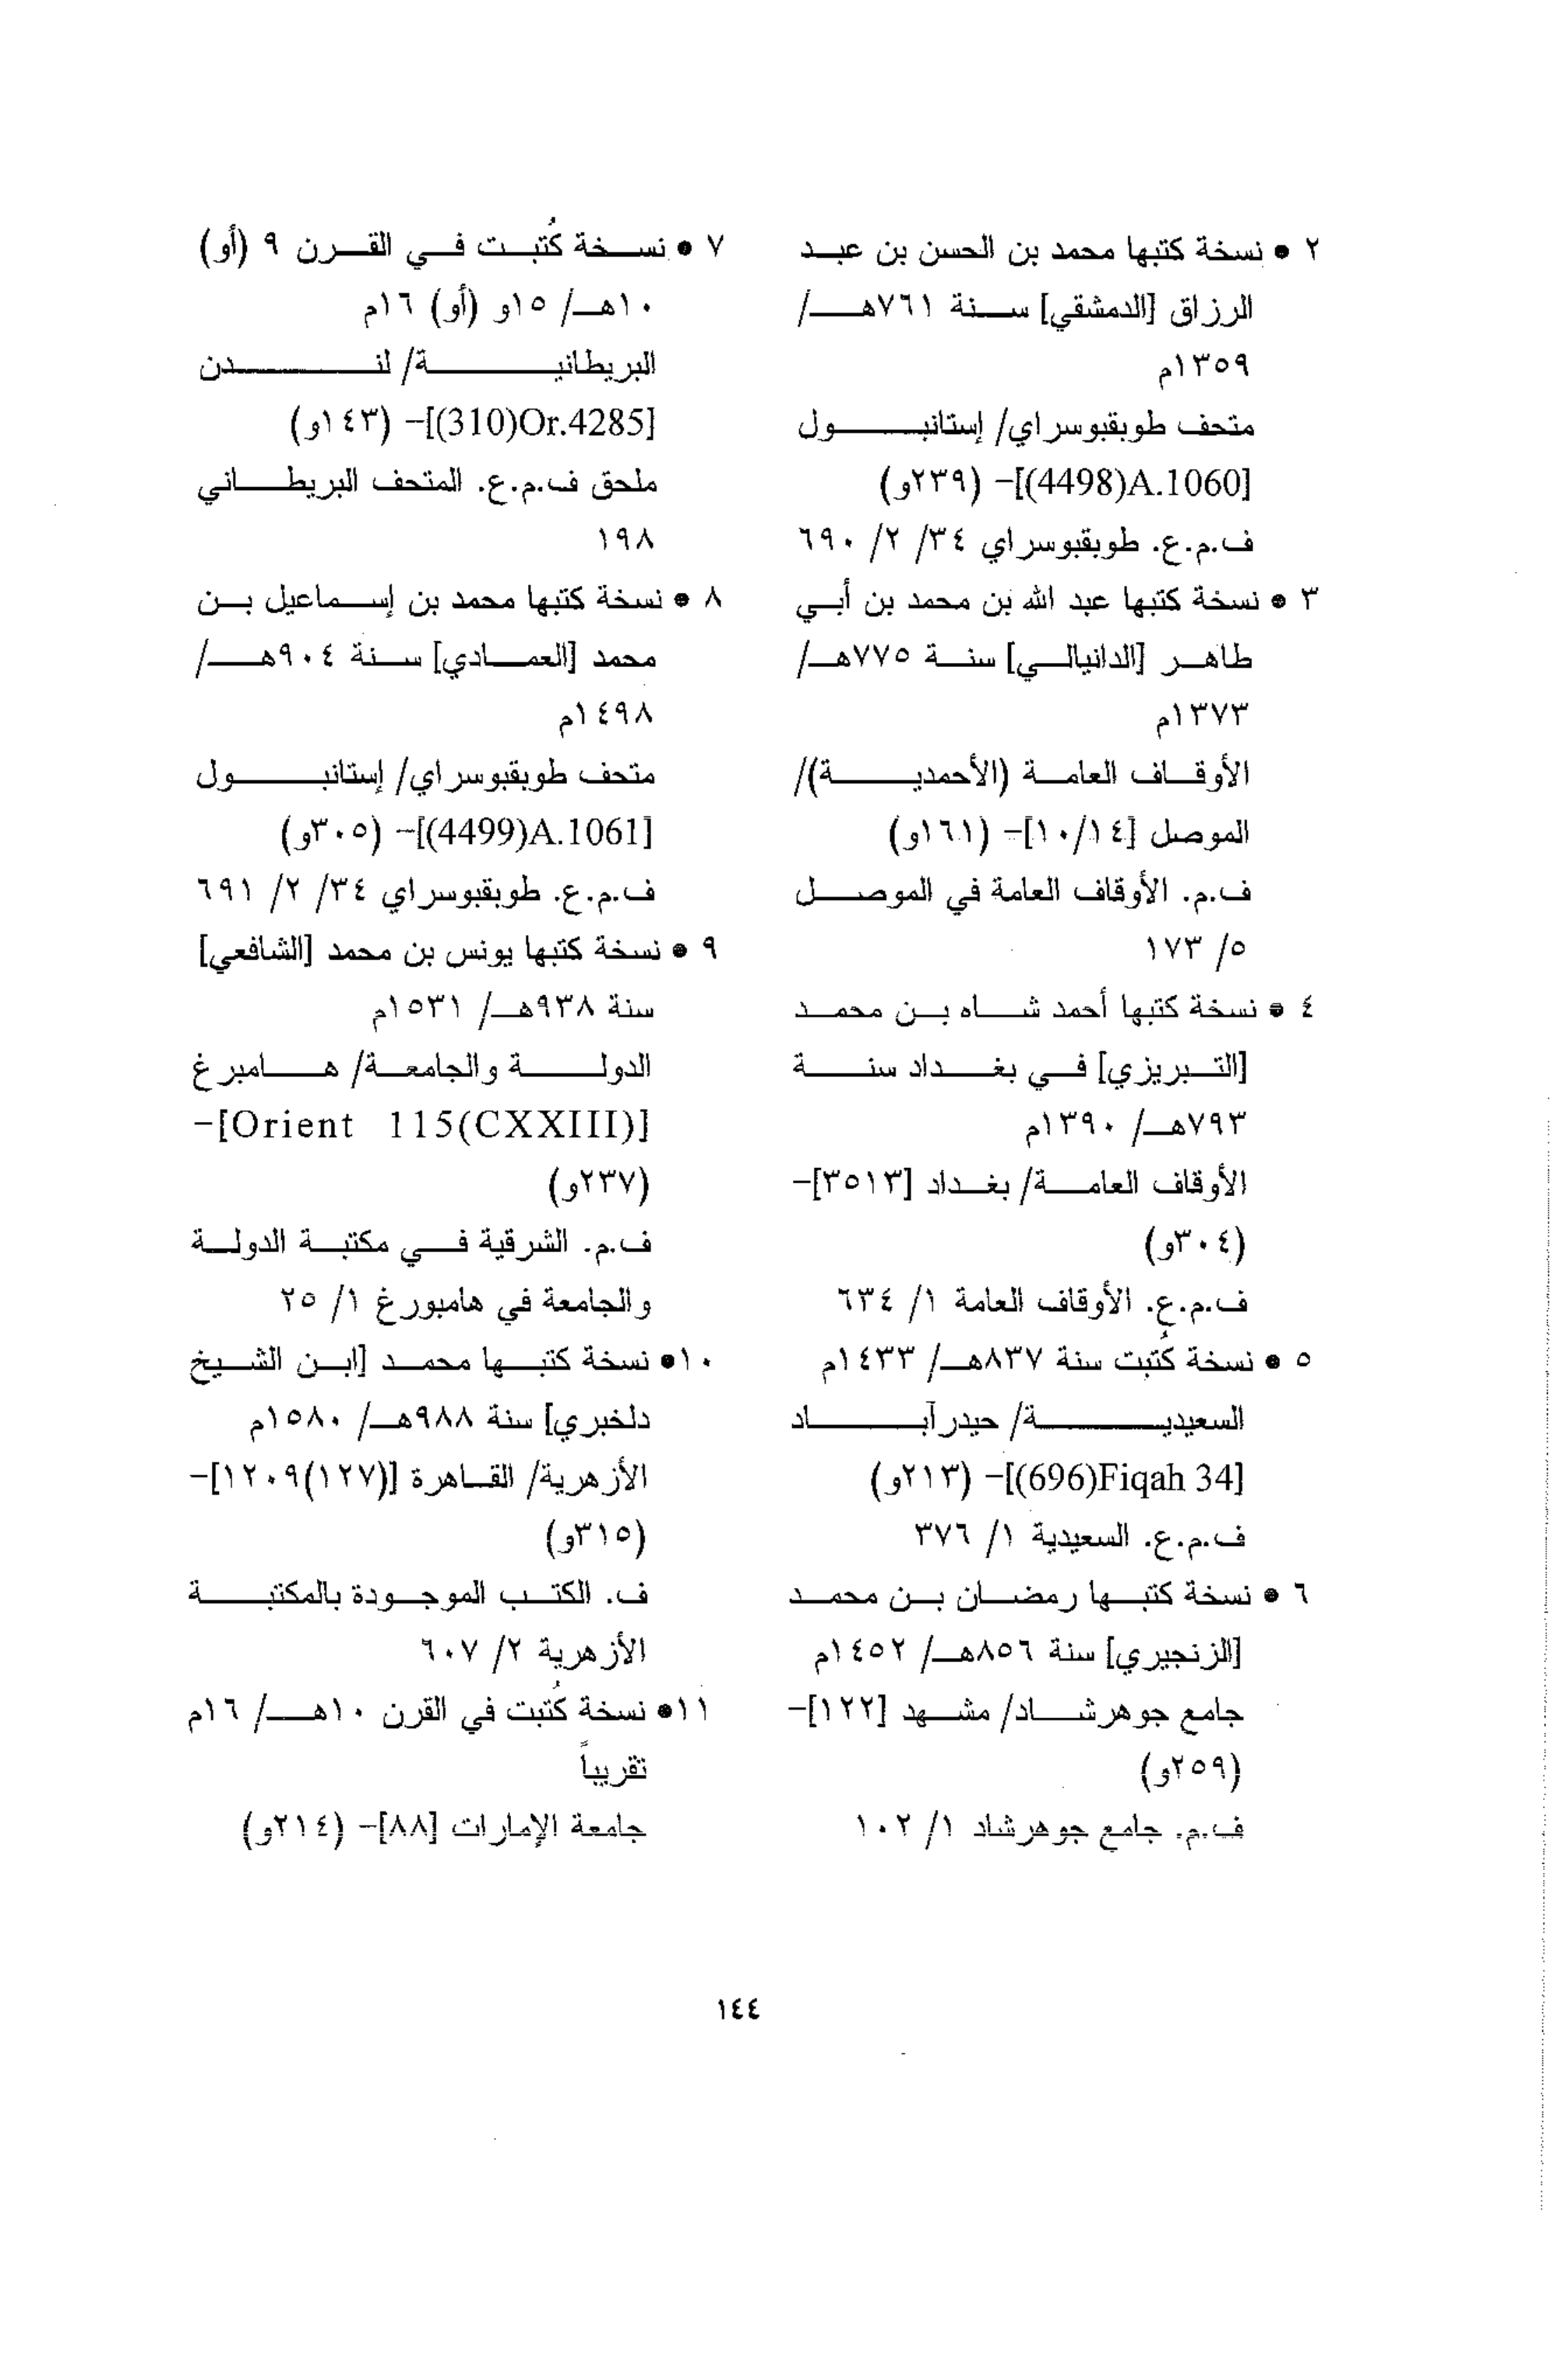 ٢ • نسخة كتبها محمد بن الحسن بن عبد
الرزاق [الدمشقي] سنة ٧٦١هـ/
١٣٥٩م
متحف طوبقبوسراي/ إستانبول
[4498)A.1060)]- (٢٣٩و)
ف.م.ع. طوبقبوسراي ٣٤/ ٢/ ٦٩٠
٣ • نسخة كتبها عبد الله بن محمد بن أبي
طاهر [الدانيالي] سنة ٧٧٥هـ/
١٣٧٣م
الأوقاف العامة (الأحمدية)/
الموصل [١٠/١٤]- (١٦١و)
ف.م. الأوقاف العامة في الموصل
٥/ ١٧٣
٤ • نسخة كتبها أحمد شاه بن محمد
[التبريزي] في بغداد سنة
٧٩٣هـ/ ١٣٩٠م
الأوقاف العامة/ بغداد [٣٥١٣]-
(٣٠٤و)
ف.م.ع. الأوقاف العامة ١/ ٦٣٤
٥ • نسخة كُتبت سنة ٨٣٧هـ/ ١٤٣٣م
السعيدية/ حيدرآباد
[(696)Fiqah 34]- (٢١٣و)
ف.م.ع. السعيدية ١/ ٣٧٦
٦ • نسخة كتبها رمضان بن محمد
[الزنجيري] سنة ٨٥٦هـ/ ١٤٥٢م
جامع جوهرشاد/ مشهد [١٢٢]-
(٢٥٩و)
ف.م. جامع جوهرشاد ١/ ١٠٢
٧ • نسخة كُتبت في القرن ٩ (أو)
١٠هـ/ ١٥و (أو) ١٦م
البريطانية/ لندن
[(310)Or.4285]- (١٤٣و)
ملحق ف.م.ع. المتحف البريطاني
١٩٨
٨ • نسخة كتبها محمد بن إسماعيل بن
محمد [العمادي] سنة ٩٠٤هـ/
١٤٩٨م
متحف طوبقبوسراي/ إستانبول
[(4499)A.1061]- (٣٠٥و)
ف.م.ع. طوبقبوسراي ٣٤/ ٢/ ٦٩١
٩ • نسخة كتبها يونس بن محمد [الشافعي]
سنة ٩٣٨هـ/ ١٥٣١م
الدولة والجامعة/ هامبرغ
[Orient 115(CXXIII)]-
(٢٣٧و)
ف.م. الشرقية في مكتبة الدولة
والجامعة في هامبورغ ١/ ٢٥
١٠• نسخة كتبها محمد [ابن الشيخ
دلخبري] سنة ٩٨٨هـ/ ١٥٨٠م
الأزهرية/ القاهرة [(١٢٧)١٢٠٩]-
(٣١٥و)
ف. الكتب الموجودة بالمكتبة
الأزهرية ٢/ ٦٠٧
١١• نسخة كُتبت في القرن ١٠هـ/ ١٦م
تقريباً
جامعة الإمارات [٨٨]- (٢١٤و)
١٤٤